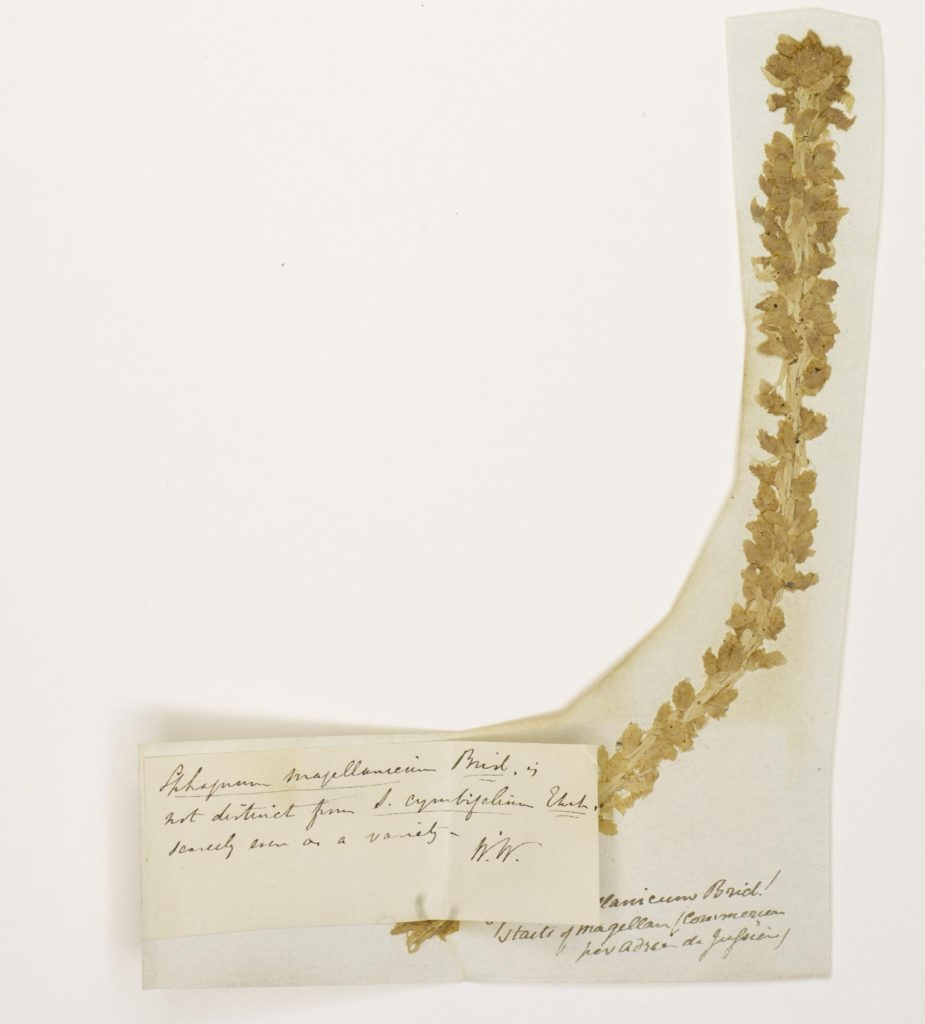 Sphagnum magellanicum Brid. is
not distinct from S. cymbifolium Ehrh.
scarcely even as a variety –
W.W.
llanicum Brid!
Staits of magellan (Commerson
per Adrien de Jussieu)